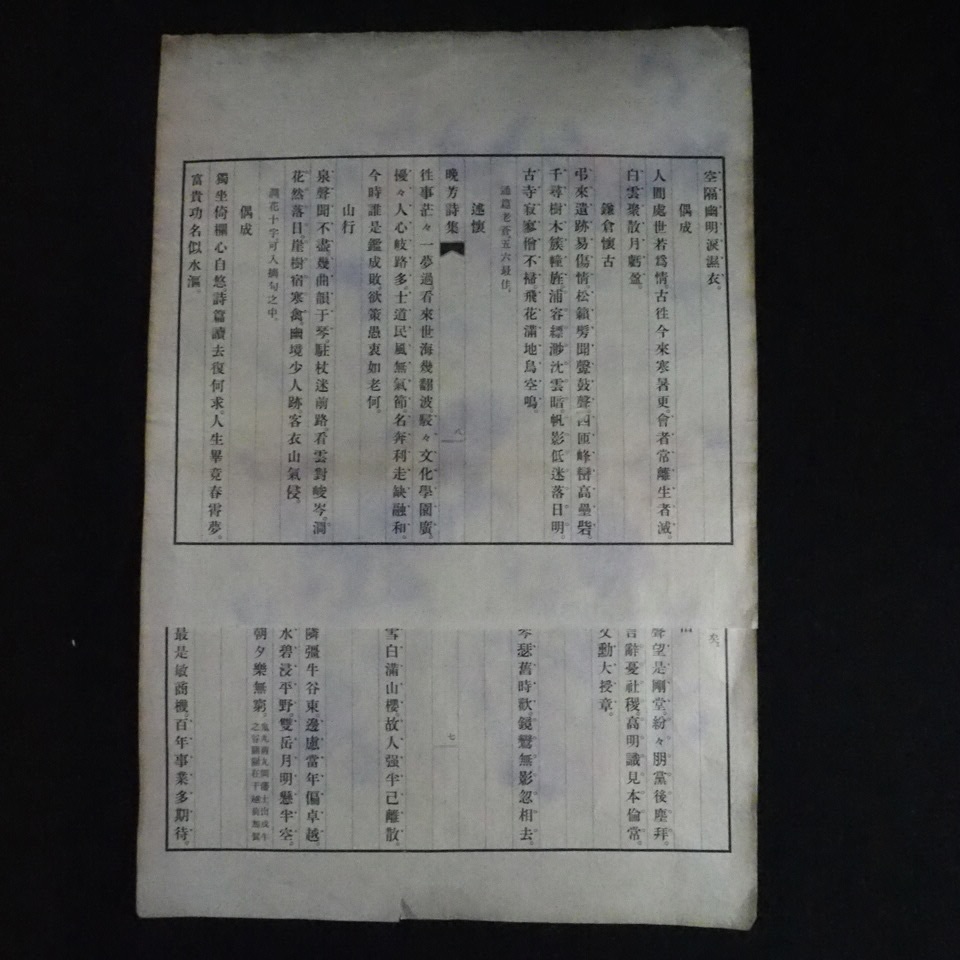 空隔幽明淚濕衣。
偶成
人間處世若爲情。古往今來寒暑更。會者常離生者滅。
白雲聚散月虧盈。
鎌倉懷古
弔來遺跡易傷情。松籟勞聞聲鼓聲。四匝峰巒高壘砦。
千尋樹木簇幢旌。浦客縹渺沈雲暗。帆影低迷落日明。
古寺寂寥僧不掃。飛花滿地鳥空鳴。
通篇老蒼。五六最佳。
晩芳詩集
八
述懷
往事茫々一夢過。看來世海幾飜波。駸々文化學園廣。
擾々人心岐路多。士道民風無氣節。名奔利走缺融和。
今時誰是鑑成敗。欲策愚衷如老何。
山行
泉聲聞不盡。幾曲韻于琴。駐杖迷前路。看雲對峻岑。澗
花然落日。崖樹宿寒禽。幽境少人跡。客衣山氣侵。
澗花十字可入摘句之中。
偶成
獨坐倚欄心自悠。詩篇讀去復何求。人生畢竟春宵夢。
富貴功名似水漚。
矣。
聲望是剛堂。紛々朋黨後塵拜。
言辭憂社稷。高明識見本倫常。
文勳大授章。
琴瑟舊時歡。鏡鸞無影忽相去。
七
雪白滿山櫻。故人强半已離散。
隣彊牛谷東。邊慮當年偏卓越。
水碧浸平野。雙岳月明懸半空。
朝夕樂無窮。
最是敏商機。百年事業多期待。